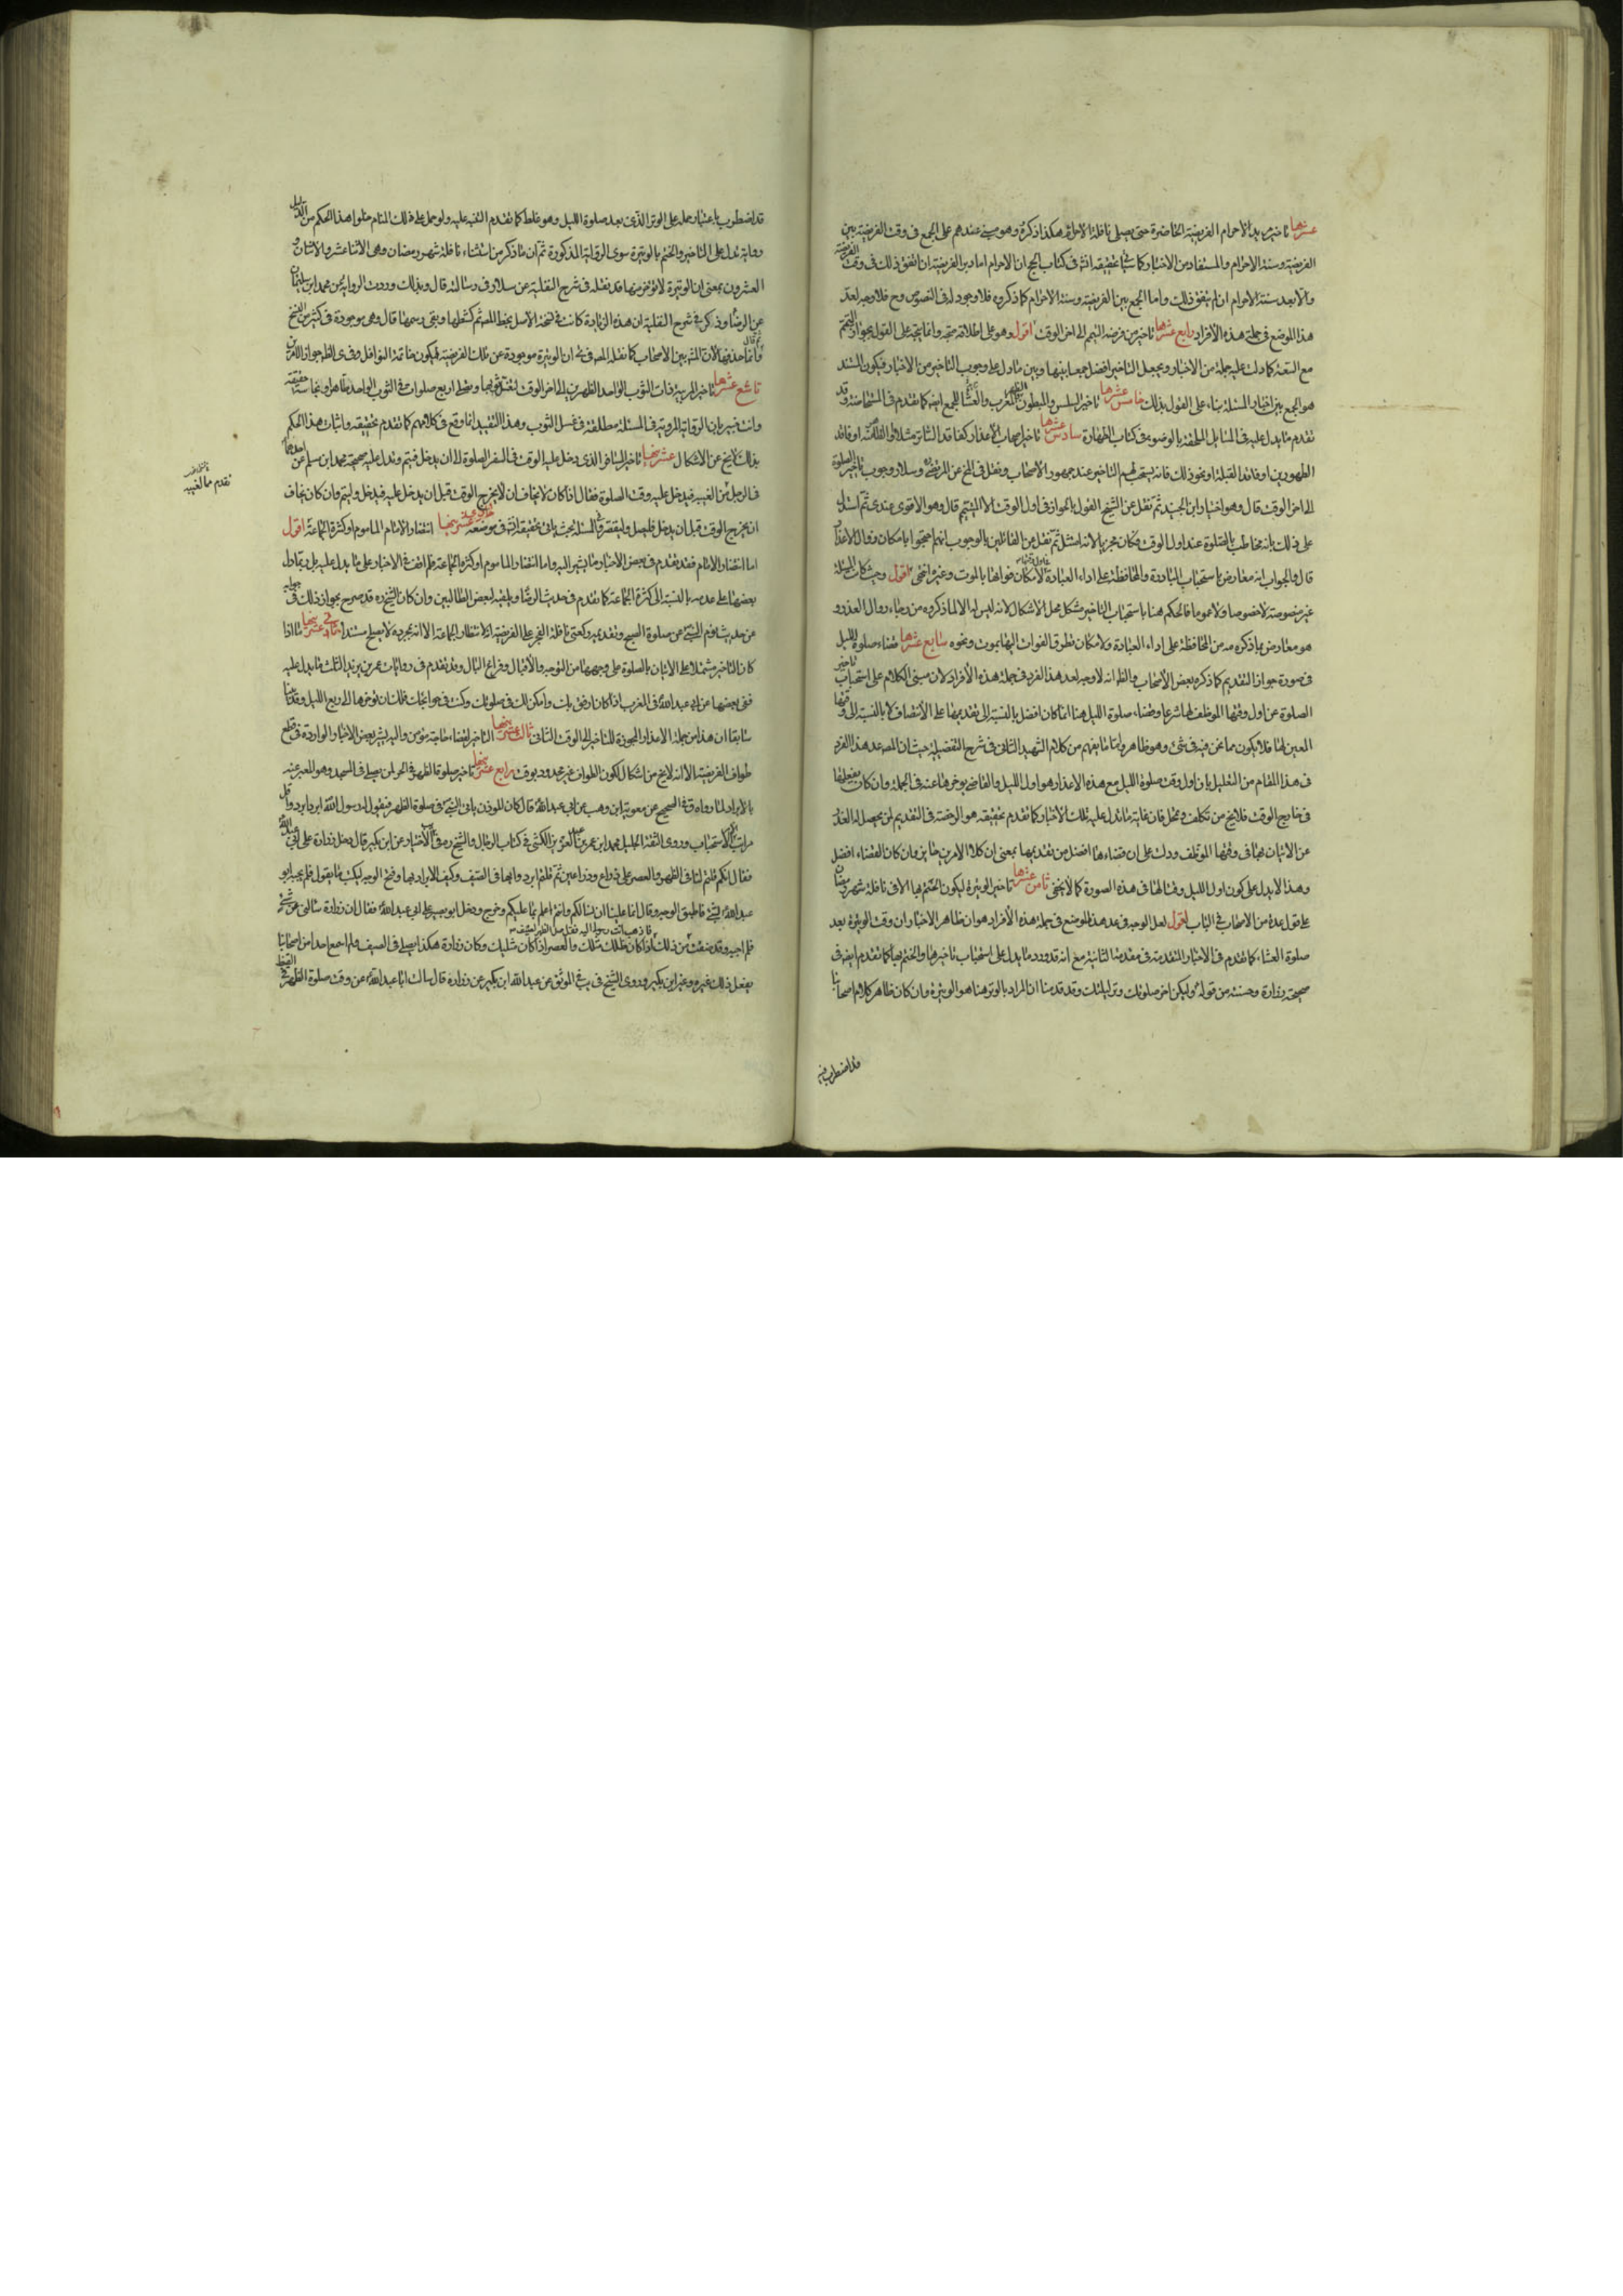 عشرها تاخير مريد الاحرام الفريضة الحاضرة حتى يصلى نافلة الاحرام هكذا ذكره وهو مبنى عندهم على الجمع فى وقت الفريضة بين
الفريضة وسنة الاحرام والمستفاد من الاخبار كما سيأتى تحقيقه انش فى كتاب الحج ان الاحرام اما دبر الفريضة ان اتفق ذلك فى وقت الفريضة
والا بعد سنة الاحرام ان لم يتفق ذلك واما الجمع بين الفريضة وسنة الاحرام كما ذكروه فلا وجود له فى النصوص وح فلا وجه لعد
هذا الموضع فى جملة هذه الأفراد رابع عشرها تاخير من فرضه التيمم الى اخر الوقت اقول وهو على اطلاقه متجه وانما يتجه على القول بجواز التيمم
مع السعة كما دلت عليه جملة من الاخبار ويجعل التاخير افضل جمعا بينها وبين ما دل على وجوب التاخير من الاخبار فيكون السند
هو الجمع بين اخبار المسئلة بناء على القول بذلك خامس عشرها تاخير السلس والمبطون الظهر والمغرب والعشا للجمع ايضا كما تقدم فى المستحاضة وقد
تقدم ما يدل عليه فى المسايل الملحقة بالوضوء فى كتاب الطهارة سادس عشرها تاخير اصحاب الأعذار كفاقد الساتر مثلا او فاقد
الطهورين او فاقد القبلة او نحو ذلك فانه يستحب لهم التاخير عند جمهور الاصحاب ونقل فى المخ عن المرتضى وسلار وجوب تاخير الصلوة
الى اخر الوقت قال وهو اختيار ابن الجنيد ثم نقل عن الشيخ القول بالجواز فى اول الوقت الا المتيمم قال وهو الاقوى عندى ثم استدل
على ذلك بانه مخاطب بالصلوة عند اول الوقت فكان مجزيا لانه امتثل ثم نقل عن القائلين بالوجوب انهم احتجوا بامكان زوال الاعذار
قال والجواب انه معارض باستحباب المبادرة والمحافظة على اداء العبادة لامكان فواتها بالموت وغيره انتهى اقول وحيث كانت المسئلة
غير منصوصة لا خصوصا ولا عموما فالحكم هنا باستحباب التاخير مشكل محل الاشكال لانه ليس له الا لما ذكروه من رجاء زوال العذر و
هو معارض بما ذكره مه من المحافظة على اداء العبادة ولامكان تطرق الفوات اليها بموت ونحوه سابع عشرها قضاء صلوة الليل
فى صورة جواز التقديم كما ذكره بعض الأصحاب والظ انه لا وجه لعد هذا الفرد فى جملة هذه الأفراد لان مبنى الكلام على استحباب تاخير
الصلوة عن اول وقتها الموظف لها شرعا وقضاء صلوة الليل هنا انما كان افضل بالنسبة الى تقديمها على الأنتصاف لا بالنسبة الى وقتها
المعين لها فلا يكون مما نحن فيه فى شئ وهو ظاهر واما ما يفهم من كلام الشهيد الثانى فى شرح النفلية حيث ان المص عد هذا الفرد
فى هذا المقام من التعليل بان اول وقت صلوة الليل مع هذه الاعذار هو اول الليل والقاضى يؤخرها عنه فى الجملة وان كان يفعلها
فى خارج الوقت فلا يخ من تكلف وتمحل فان غاية ما تدل عليه تلك الأخبار كما تقدم تحقيقه هو الرخصة فى التقديم لمن يحصل له العذر
عن الاتيان بها فى وقتها الموظف ودلت على ان قضاءها افضل من تقديمها بمعنى ان كلا الامرين جايز وان كان القضاء افضل
وهذا لا يدل على كون اول الليل وقتا لها فى هذه الصورة كما لا يخفى ثامن عشرها تاخير الوتيرة ليكون الختم بها الا فى نافلة شهر رمضان
على قول عدة من الاصحاب فى الباب اقول لعل الوجه فى عد هذا الموضع فى جملة هذه الأفراد هو ان ظاهر الاخبار ان وقت الوتيرة بعد
صلوة العشاء كما تقدم فى الاخبار المتقدمة فى مقدمة الثانية مع انه قد ورد ما يدل على استحباب تاخيرها والختم بها كما تقدم ايضه فى
صحيحة زرارة وحسنته من قوله وليكن اخر صلوتك وتر ليلتك وقد قدمنا ان المراد بالوتر هنا هو الوتيرة وان كان ظاهر كلام اصحابنا
قد اضطرب فيه
قد اضطرب باعتبار حمله على الوتر الذى بعد صلوة الليل وهو غلط كما تقدم التنبيه عليه ولو حمل على ذلك المنام خلوا هذا الحكم من الدليل
رواية تدل على التاخير والختم بالوتيرة سوى الرواية المذكورة ثم ان ما ذكر من استثناء نافلة شهر رمضان وهى الاثنا عشر والاثنان و
العشرون بمعنى ان الوتيرة لا تؤخر عنها قد نقله فى شرح النفلية عن سلار فى رسالته قال وبذلك وردت الرواية عن محمد ابن سليمان
عن الرضا وذكر فى شرح النفلية ان هذه الزيادة كانت فى نسخة الاصل بخط المص ثم كشطها وبقى رسمها قال وهى موجودة فى كثير من النسخ
وانما حذفها لان المشهور بين الاصحاب كما نقله المص فى ان الوتيرة موجودة عن تلك الفريضة ليكون خاتمة النوافل وفى الظ جواز الامرين
تاسع عشرها تاخير المربية ذات الثوب الواحد الظهرين الى اخر الوقت لتغسل ثوبها وتصلى اربع صلوات فى الثوب الواحد بطاهر او نجاسة خفيفة
وانت خبير بان الرواية المروية فى المسئلة مطلقة فى غسل الثوب وهذا التقييد انما وقع فى كلامهم كما تقدم تحقيقه واثبات هذا الحكم
بذلك لا يخ عن الاشكال عشرينها تاخير المسافر الذى دخل عليه الوقت فى السفر الصلوة الى ان يدخل فيتم وتدل عليه صحيحة محمد ابن مسلم عن احدهما
فى الرجل من الغيبه فيدخل عليه وقت الصلوة فقال ان كان لا يخاف ان لا يخرج الوقت قبل ان يدخل عليه فيدخل وليتم وان كان يخاف
ان يخرج الوقت قبل ان يدخل فليصل وليقصر وفى المسئلة بحث ياتى تحقيقه انش فى موضعه حادى عشرينها انتظار الامام الماموم او كثرة الجماعة اقول
اما انتظار الامام فقد تقدم فى بعض الأخبار ما يشير اليه واما انتظار الماموم او كثرة الجماعة فلم اقف فى الاخبار على ما يدل عليه بل ربما دل
بعضها على عدمه بالنسبة الى كثرة الجماعة كما تقدم فى حديث الرضا وتلقيه لبعض الطالبيين وان كان الشيخ ره قد صرح بجواز ذلك فى جوابه
عن حديث نوم النبى عن صلوة الصبح وتقديمه ركعتى نافلة الفجر على الفريضة لانتظار الجماعة الا انه بمجرده لا يصلح مستندا ثانى عشرينها ما اذا
كان التاخير مشتملا على الاتيان بالصلوة على وجهها من التوجه والأقبال وفراغ البال وقد تقدم فى روايات عمر بن يزيد الثلث ما يدل عليه
ففى بعضها عن ابى عبد الله فى المغرب اذا كان ارفق بك وامكن لك فى صلوتك وكنت فى حوائجك فلك ان تؤخرها الى ربع الليل وقدمنا
سابقا ان هذا من جملة الاعذار المجوزة للتاخير الى الوقت الثانى ثالث عشرينها التاخير لقضاء حاجة مؤمن واليه يشير بعض الاخبار الواردة فى قطع
طواف الفريضة الا انه لا يخ من اشكال لكون الطواف غير محدود بوقت رابع عشرينها تاخير صلوة الظهر فى الحر لمن يصلى فى المسجد وهو المعبر عنه
بالابراد لما رواه ق فى الصحيح عن معوية ابن وهب عن ابى عبد الله قال كان المؤذن ياتى النبى فى صلوة الظهر فيقول له رسول الله ابرد ابرد واقل
مراتب الأمر الاستحباب وروى الثقة الجليل محمد ابن عمر بن عبد العزيز الكشى فى كتاب الرجال والشيخ رهق فى الأختيار عن ابن بكير قال دخل زرارة على ابى عبد الله
فقال انكم قلتم لنا فى الظهر والعصر على ذراع وذراعين ثم قلتم ابردوا بها فى الصيف وكيف الابراد بها وفتح الواحه ليكتب ما يقول فلم يجبه ابو
عبد الله بشئ فاطبق الواحه وقال انما علينا ان نسالكم وانتم اعلم بما عليكم وخرج ودخل ابو بصير على ابى عبد الله فقال ان زرارة سالنى عن شئ
فلم اجبه وقد ضقت من ذلك فاذهب انت رسولى اليه فقل صل الظهر فى الصيف اذا كان ظلك مثلك والعصر اذا كان مثليك وكان زرارة هكذا يصلى فى الصيف ولم اسمع احدا من اصحابنا
يفعل ذلك غيره وغير ابن بكير وروى الشيخ فى يب فى الموثق عن عبد الله ابن بكير عن زرارة قال سالت ابا عبد الله عن وقت صلوة الظهر فى القيظ
تقدم من الغيبه